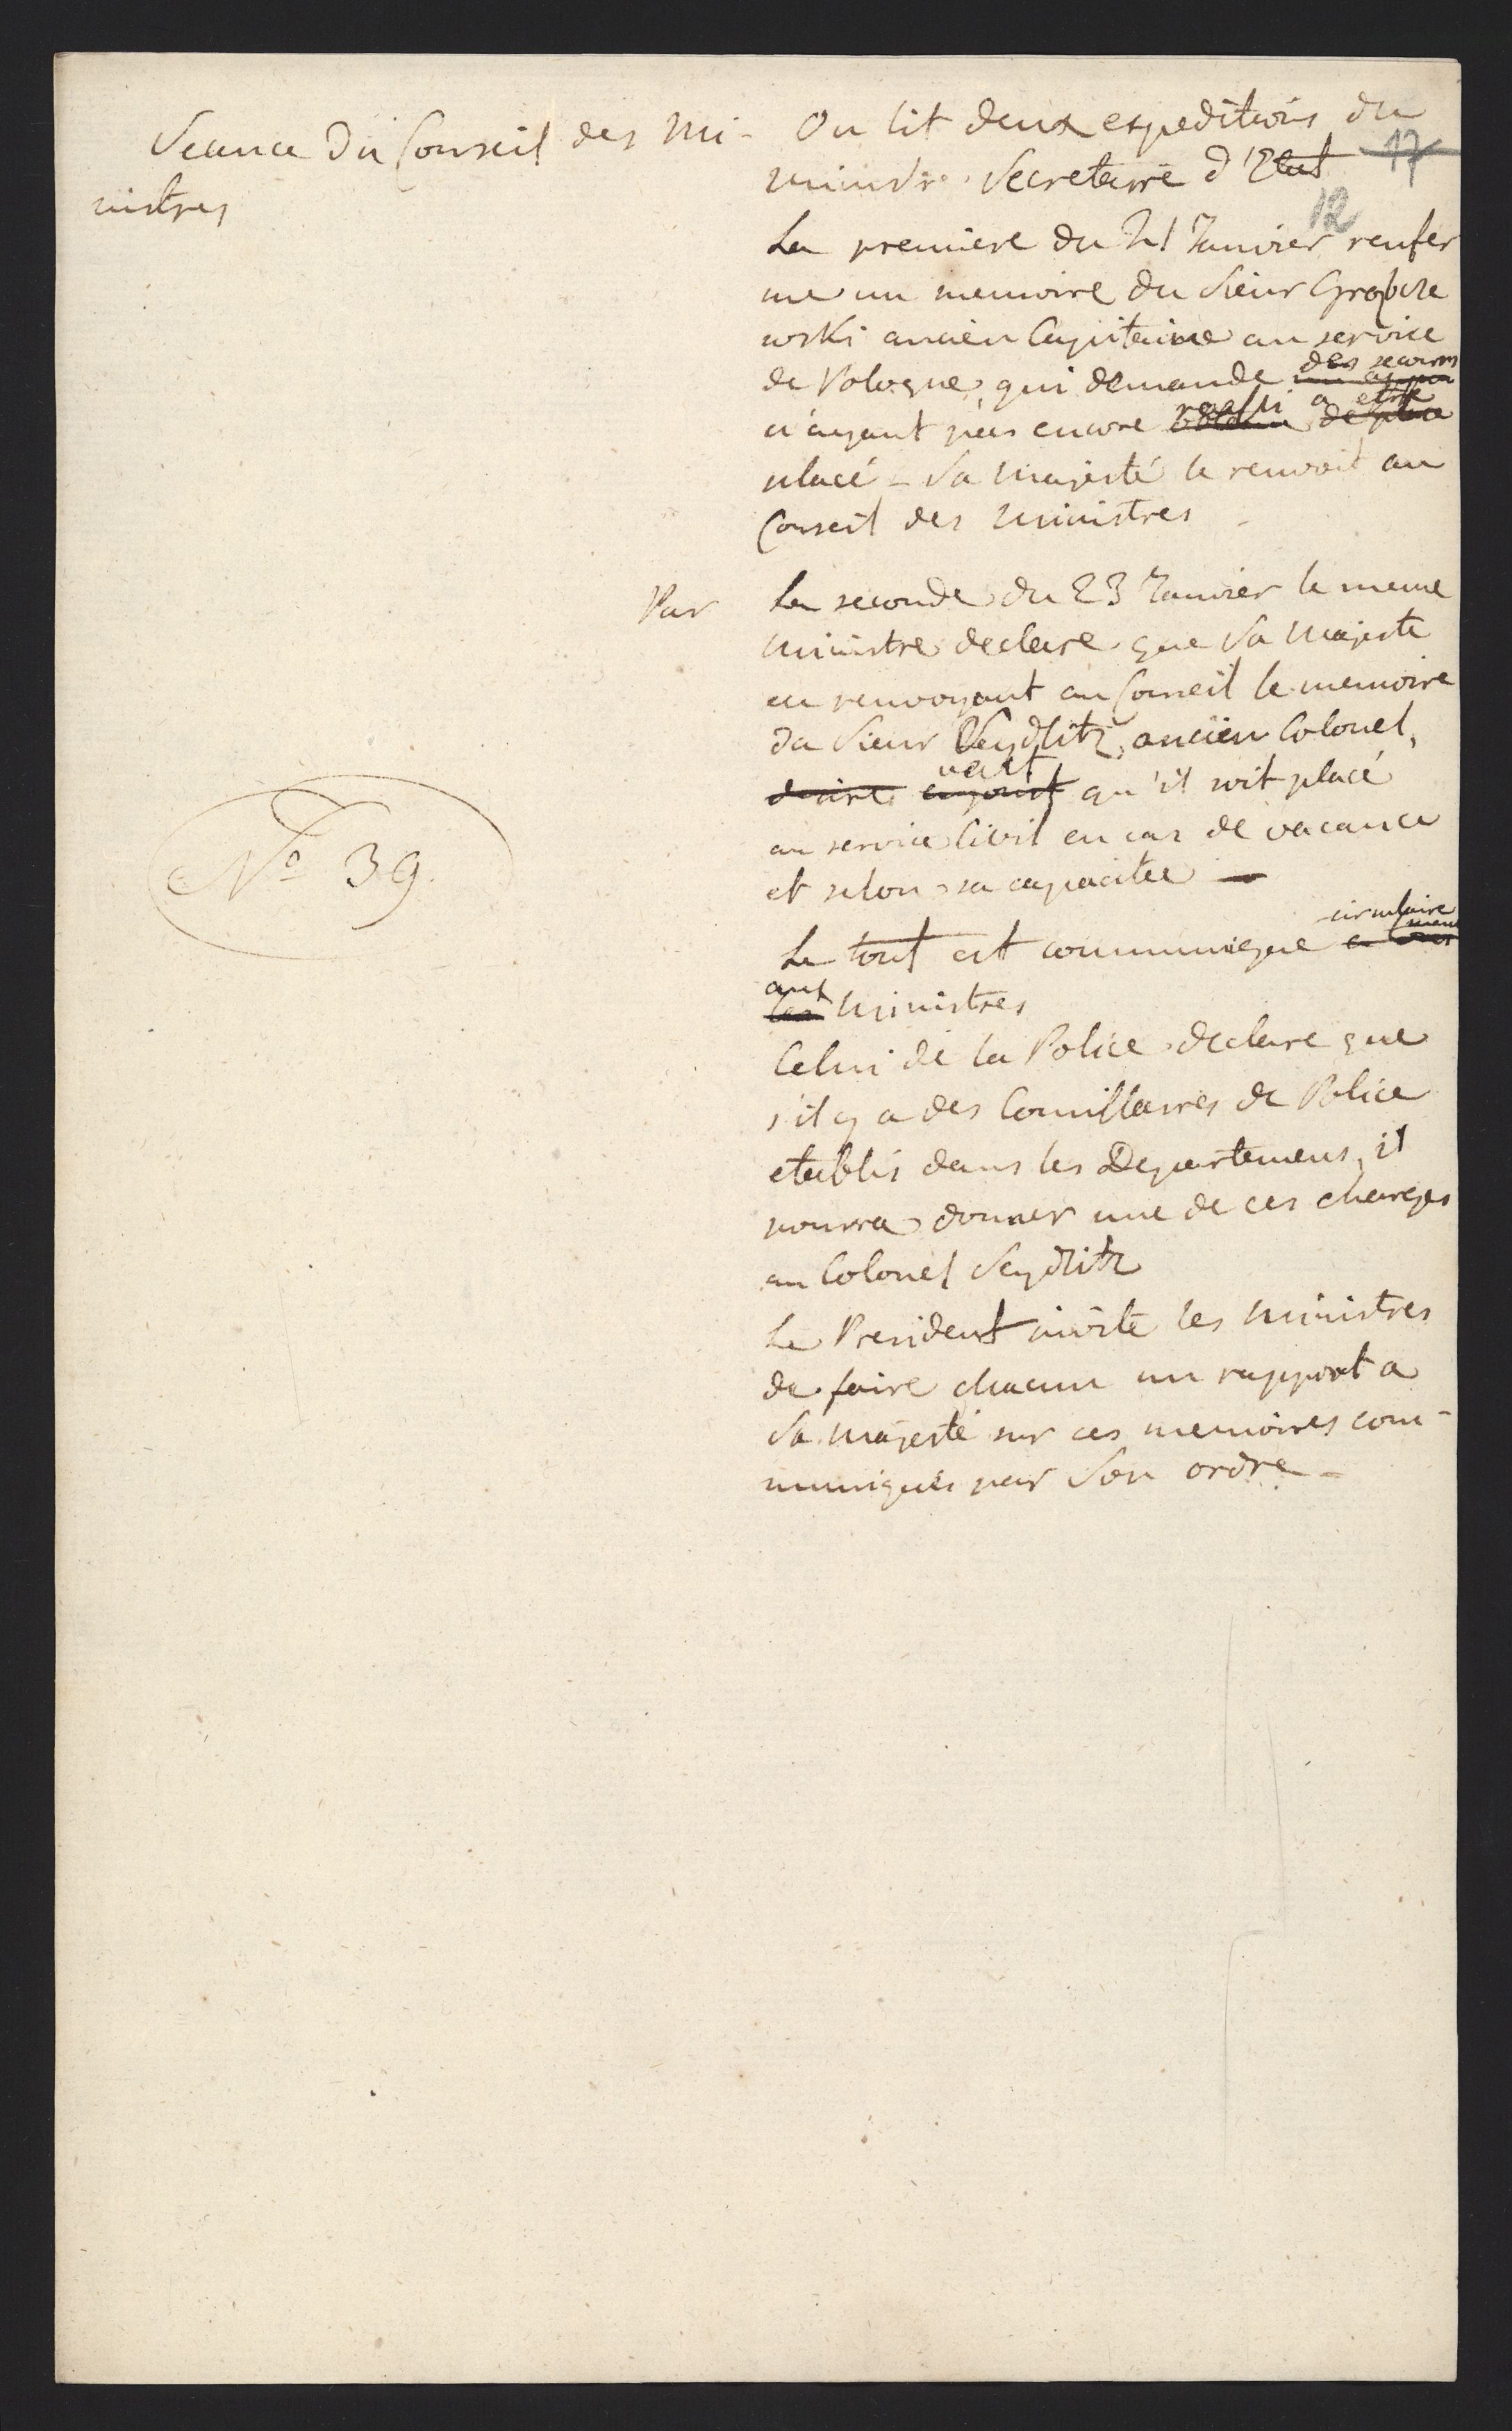 Seance du Conseil des Mi-
nistres
No 39.
On lit deux expeditions du
ministre Secretaire d'Etat
17
12
La premiere du 21 Janvier renfer
me un memoire du Sieur
wski ancien Capitaine au service
de Pologne, qui demande des secours
n'ayant pas encore reussi a etre
placé - Sa Majesté le renvoit au
Conseil des Ministres -
Par La seconde du 23 Janvier le meme
Ministre declare que Sa Majesté
en renvoyant au Conseil le memoire
du Sieur Seydlitz, ancien Colonel,
desire veut qu'il soit placé
au service Civil en cas de vacance
et selon sa capacitee —
Le tout est communique circulairement
aux
les Ministres
Celui de la Police declare que
s'il y a des Comissaires de Police
etablis dans les Departemens, il
pourra donner une de ces charges
au Colonel Seydlitz
Le President invite les Ministres
de faire chacun un rapport a
Sa Majesté sur ces memoires com-
muniqués par Son ordre -